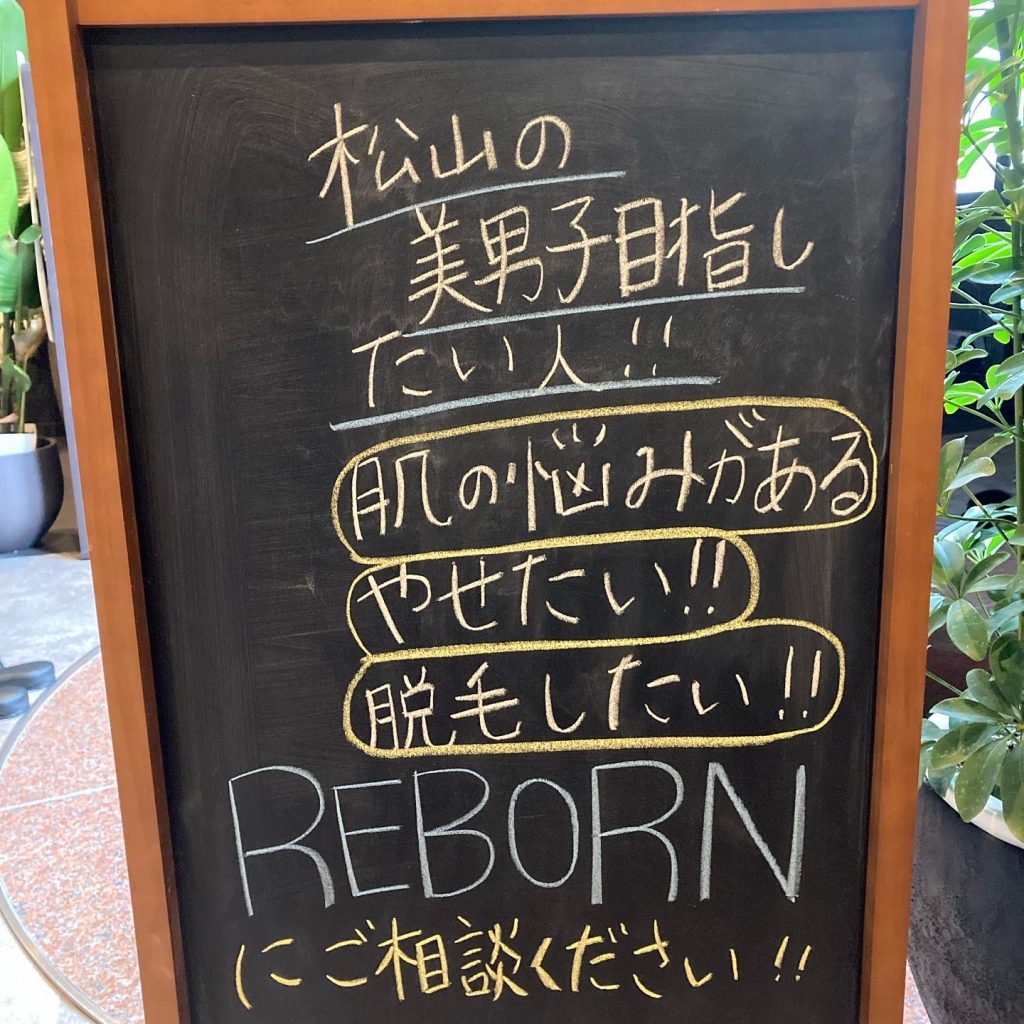 松山の
美男子目指し
たい人!!
肌の悩みがある
やせたい!!
脱毛したい!!
REBORN
にご相談ください!!